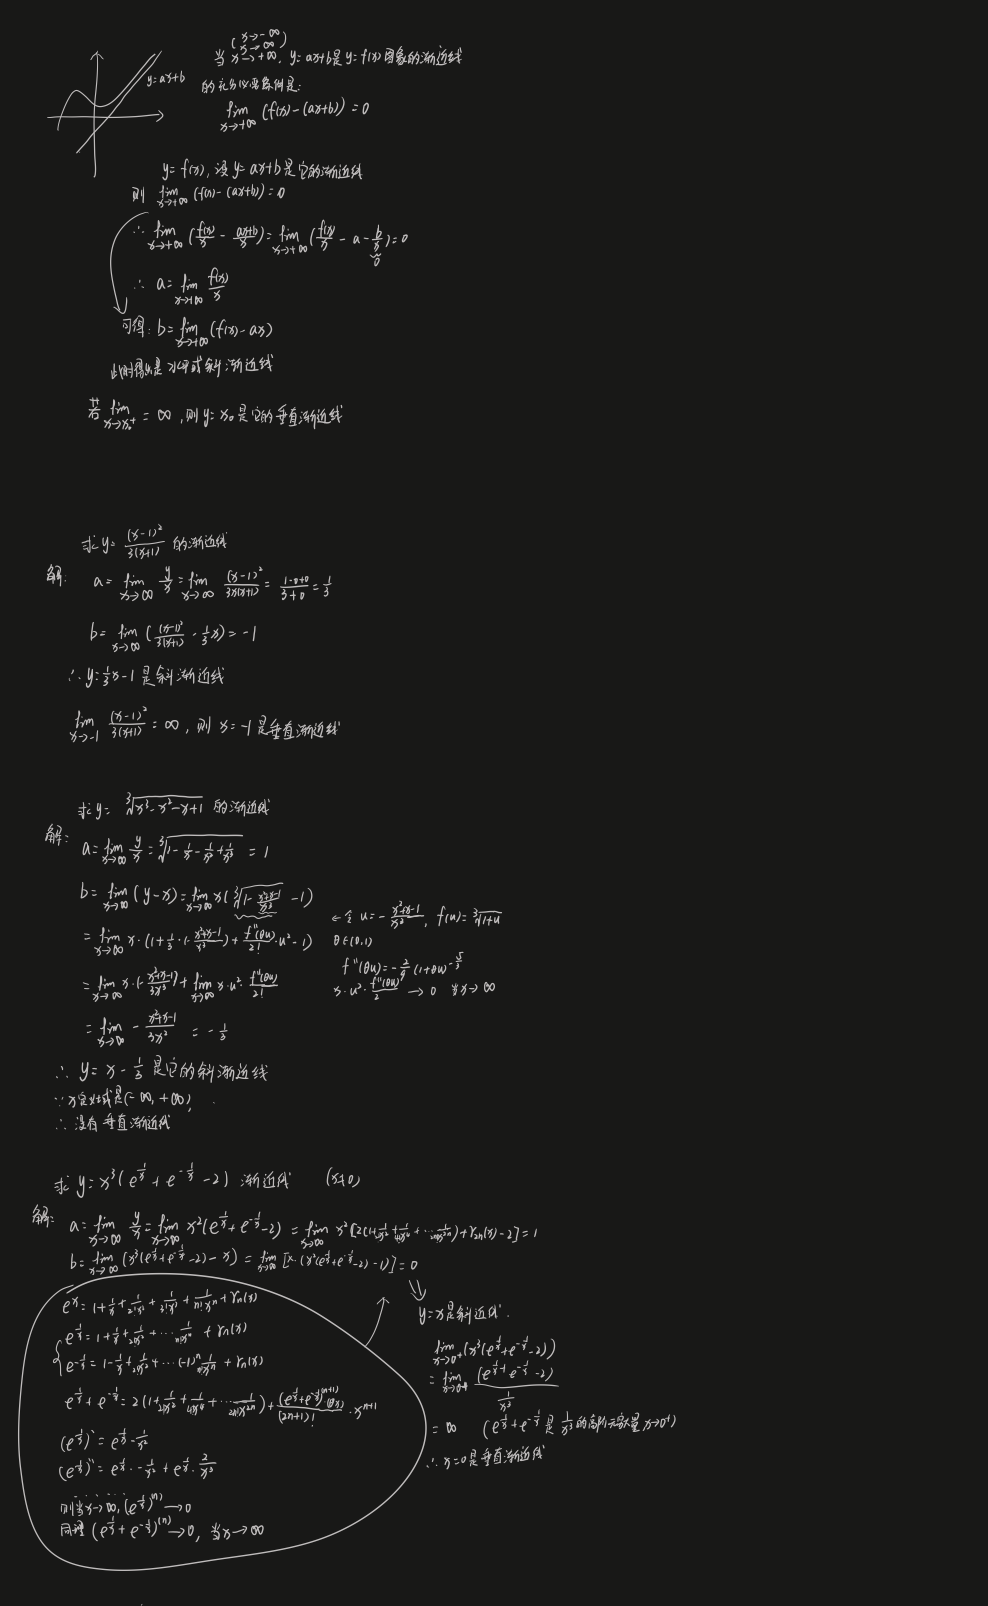 (x→-∞
x→∞)
当 x→+∞, y=ax+b是 y=f(x)图象的渐近线
y=ax+b
的充分必要条件是:
lim x→+∞ (f(x)-(ax+b))=0
y=f(x), 设 y=ax+b是它的渐近线
则 lim x→+∞ (f(x)-(ax+b))=0
∴ lim x→+∞ (f(x)/x - (ax+b)/x)= lim x→+∞ (f(x)/x - a - b/x)=0
0
∴ a= lim x→+∞ f(x)/x
可得: b= lim x→+∞ (f(x)-ax)
此时得出是水平或斜渐近线
若 lim x→x₀⁺ = ∞ ,则 y=x₀是它的垂直渐近线
求 y= (x-1)²/3(x+1) 的渐近线
解: a= lim x→∞ y/x = lim x→∞ (x-1)²/3x(x+1) = (1-0+0)/(3+0) = 1/3
b= lim x→∞ ((x-1)²/3(x+1) - 1/3 x)=-1
∴ y=1/3 x-1 是斜渐近线
lim x→-1 (x-1)²/3(x+1) = ∞ , 则 x=-1 是垂直渐近线
求 y= ∛(x³-x²-x+1) 的渐近线
解: a= lim x→∞ y/x = ∛(1-1/x-1/x²+1/x³) = 1
b= lim x→∞ (y-x)= lim x→∞ x(∛(1-(x²+x-1)/x³) -1)
←令 u=-(x²+x-1)/x³, f(u)=∛(1+u)
= lim x→∞ x·(1+1/3·(-(x²+x-1)/x³)+f''(θu)/2!·u²-1)
θ∈(0,1)
f''(θu)=-2/9 (1+θu)^(-5/3)
= lim x→∞ x·(-(x²+x-1)/3x³)+ lim x→∞ x·u²·f''(θu)/2!
x·u²·f''(θu)/2 →0 当x→∞
= lim x→∞ -(x²+x-1)/3x² = -1/3
∴ y=x-1/3 是它的斜渐近线
∵ x定义域是(-∞,+∞),
∴ 没有垂直渐近线
求 y=x³(e^(1/x)+e^(-1/x)-2) 渐近线 (x≠0)
解: a= lim x→∞ y/x = lim x→∞ x²(e^(1/x)+e^(-1/x)-2) = lim x→∞ x²[2(1+1/2!x²+1/4!x⁴+…1/2n!x^2n)+r₂ₙ(x)-2]=1
b= lim x→∞ (x³(e^(1/x)+e^(-1/x)-2)-x) = lim x→∞ [x·(x²(e^(1/x)+e^(-1/x)-2)-1)]=0
e^x=1+1/x+1/2!x²+1/3!x³+1/n!xⁿ+rₙ(x)
e^(1/x)=1+1/x+1/2!x²+…1/n!xⁿ+rₙ(x)
e^(-1/x)=1-1/x+1/2!x²+…(-1)ⁿ1/n!xⁿ+rₙ(x)
e^(1/x)+e^(-1/x)=2(1+1/2!x²+1/4!x⁴+…1/2n!x^2n)+(e^(1/x)+e^(-1/x))^(n+1)(θx)/(2n+1)!·x^(n+1)
(e^(1/x))'=e^(1/x)·-1/x²
(e^(1/x))''=e^(1/x)·-1/x²+e^(1/x)·2/x³
……
则当x→∞,(e^(1/x))^(n)→0
同理(e^(1/x)+e^(-1/x))^(n)→0, 当x→∞
y=x是斜近线.
lim x→0⁺ (x³(e^(1/x)+e^(-1/x)-2))
= lim x→0⁺ (e^(1/x)+e^(-1/x)-2)/(1/x³)
= ∞ (e^(1/x)+e^(-1/x)是1/x³的高阶无穷大量,x→0⁺)
∴ x=0是垂直渐近线